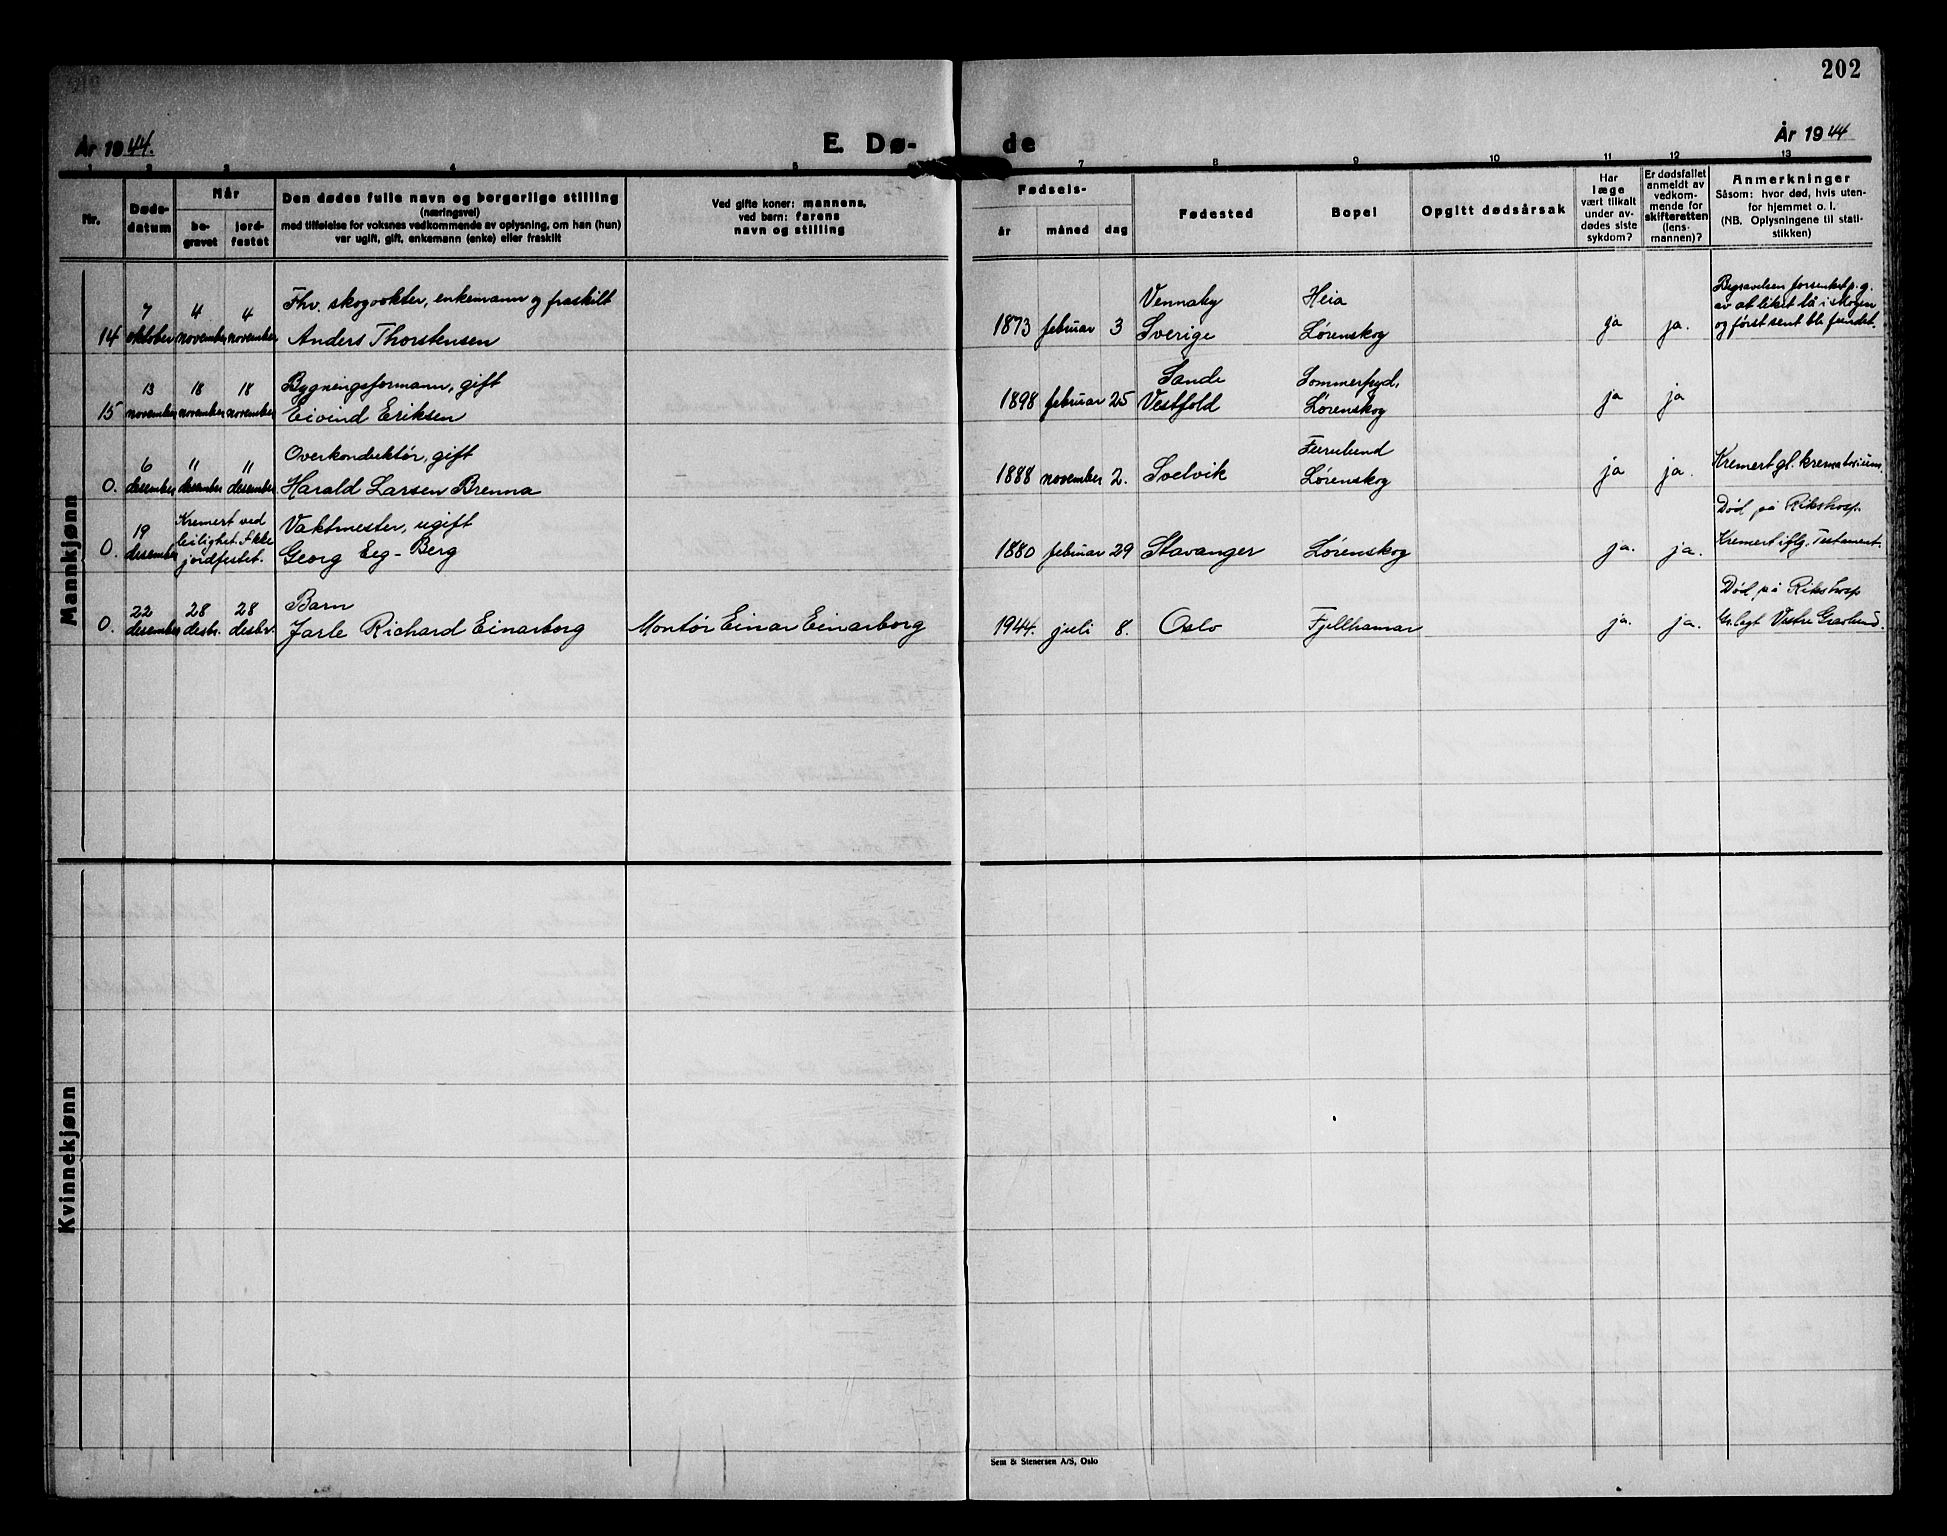 202
År 1944.
E. Dø-
de
År 1944
1 2 3 4 5 7 8 9 10 11 12 13
Nr.
Døds-
datum
Når
be-
gravet
jord-
festet
Den dødes fulle navn og borgerlige stilling
(næringsvei)
med tilføielse for voksnes vedkommende av oplysning, om han (hun)
var ugift, gift, enkemann (enke) eller fraskilt
Ved gifte koner: mannens,
ved barn: farens
navn og stilling
Fødsels-
år måned dag
Fødested
Bopel
Opgitt dødsårsak
Har
læge
vært tilkalt
under av-
dødes siste
sykdom?
Er dødsfallet
anmeldt av
vedkom-
mende for
skifteretten
(lens-
mannen)?
Anmerkninger
Såsom: hvor død, hvis uten-
for hjemmet o. l.
(NB. Oplysningene til stati-
stikken)
Mannkjønn
7 4 4 Fhv. skogvokter, enkemann og fraskilt Vennaby Heia Begravelsen forsenket p.g.
av at liket lå i skogen
14 oktober november november Anders Thorstensen 1873 februar 3 Sverige Lørenskog ja ja. og først sent ble fundet.
13 18 18 Bygningsformann, gift Sande Sommerfryd,
15 november november november Eivind Eriksen 1898 februar 25 Vestfold Lørenskog ja ja
6 11 11 Overkonduktør, gift Furulund
0. desember desember desember Harald Larsen Brenna 1888 november 2. Svelvik Lørenskog ja ja. Kremert gl. krematorium.
19 Kremert ved Vaktmester, ugift Død på Rikshosp.
leilighet. Ikke
0. desember jordfestet. Georg Eeg-Berg 1880 februar 29 Stavanger Lørenskog ja. ja. Kremert iflg. Testament.
22 28 28 Barn Død på Rikshosp
0. desember desbr. desbr. Jarle Richard Einarborg Montør Einar Einarborg 1944. juli 8. Oslo Fjellhamar ja. ja. Gr.lagt Vestre Gravlund.
Kvinnekjønn
Sem & Stenersen A/S, Oslo